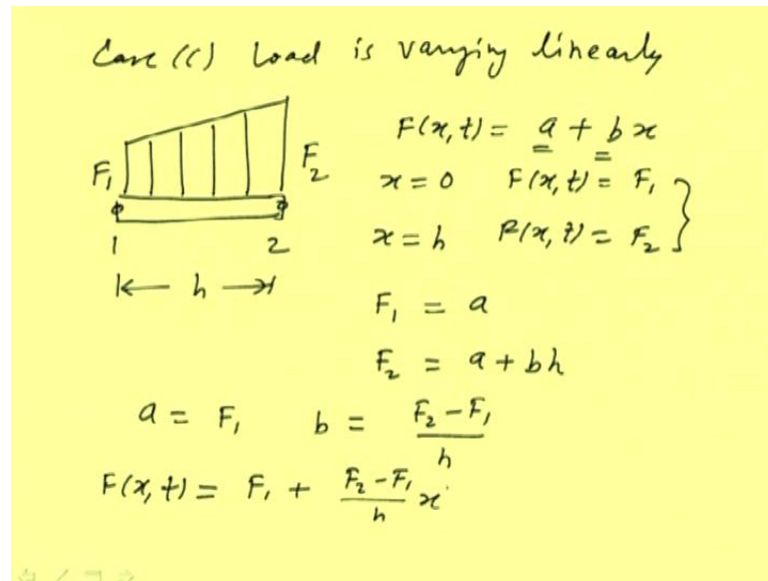 Case (c) Load is varying linearly
F(x,t) = a + bx
F₁ F₂ x = 0 F(x,t) = F₁
1 2 x = h F(x,t) = F₂
h
F₁ = a
F₂ = a + bh
a = F₁ b = (F₂ - F₁)/h
F(x,t) = F₁ + (F₂ - F₁)/h x